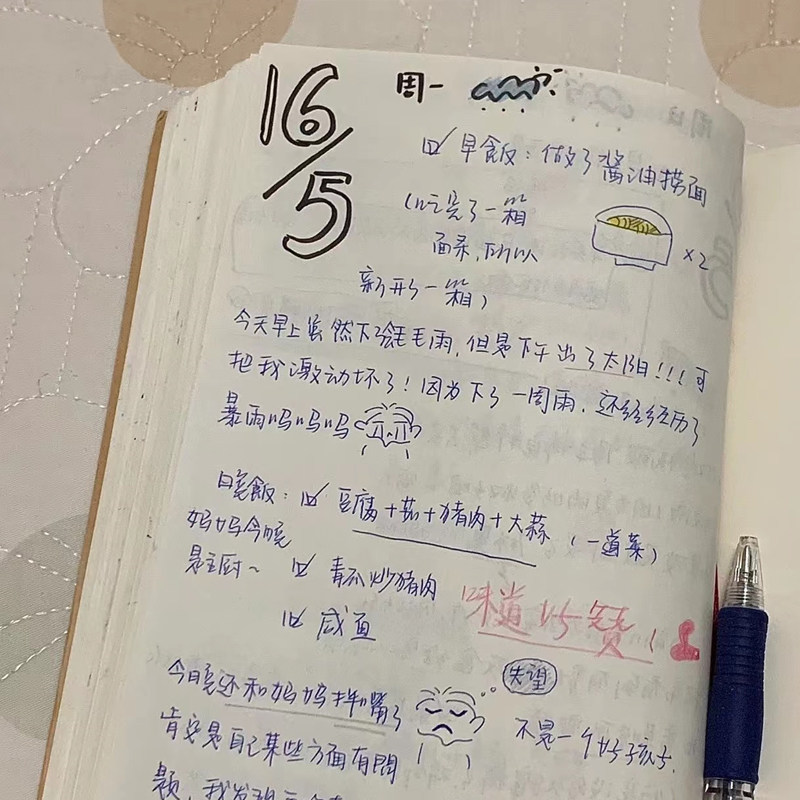 16/5
周一
早飯：做了醬油捞面
(吃完了一箱
面条,所以
新开了一箱)
x2
今天早上虽然下了毛毛雨,但是下午出了太阳!!!可
把我激动坏了!因为下了一周雨,还经历了
暴雨呜呜呜
晚飯： 豆腐+茄+猪肉+大蒜 (一道菜)
妈妈今晚
是主厨~
青瓜炒猪肉
咸鱼
味道好赞!
今晚还和妈妈拌嘴了
失望
肯定是自己某些方面有問
不是一个好孩子.
题,我发现